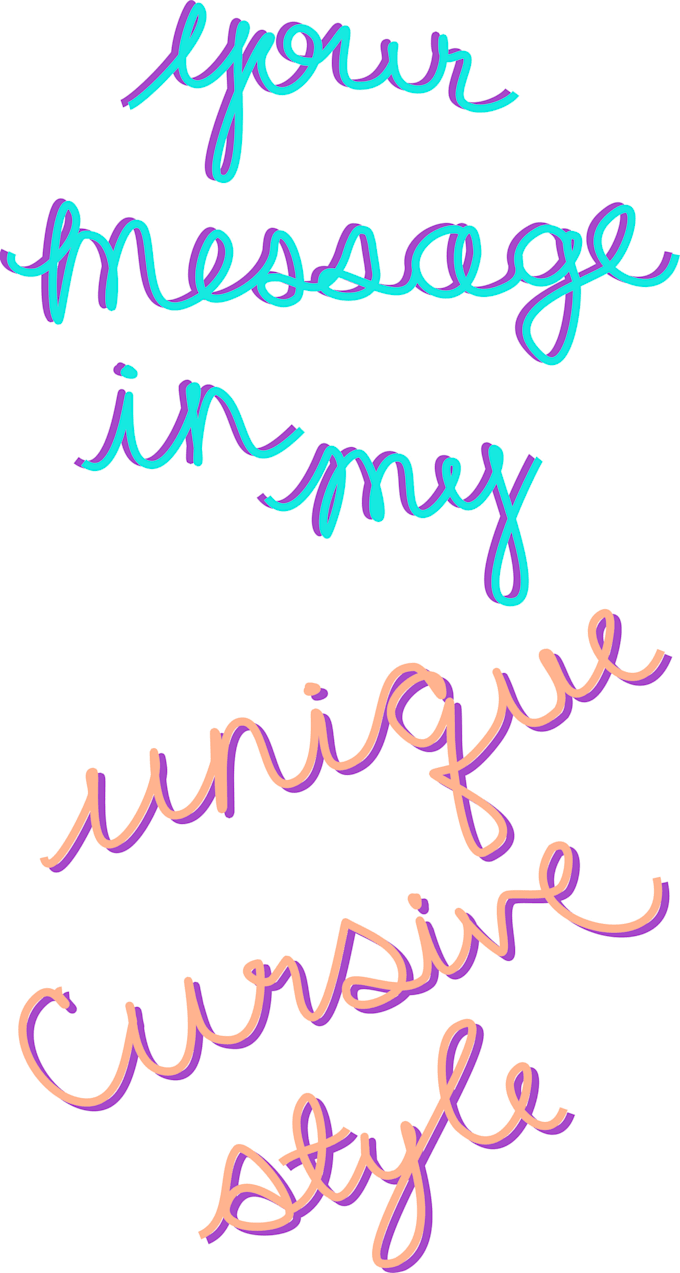 your
message
in my
unique
cursive
style